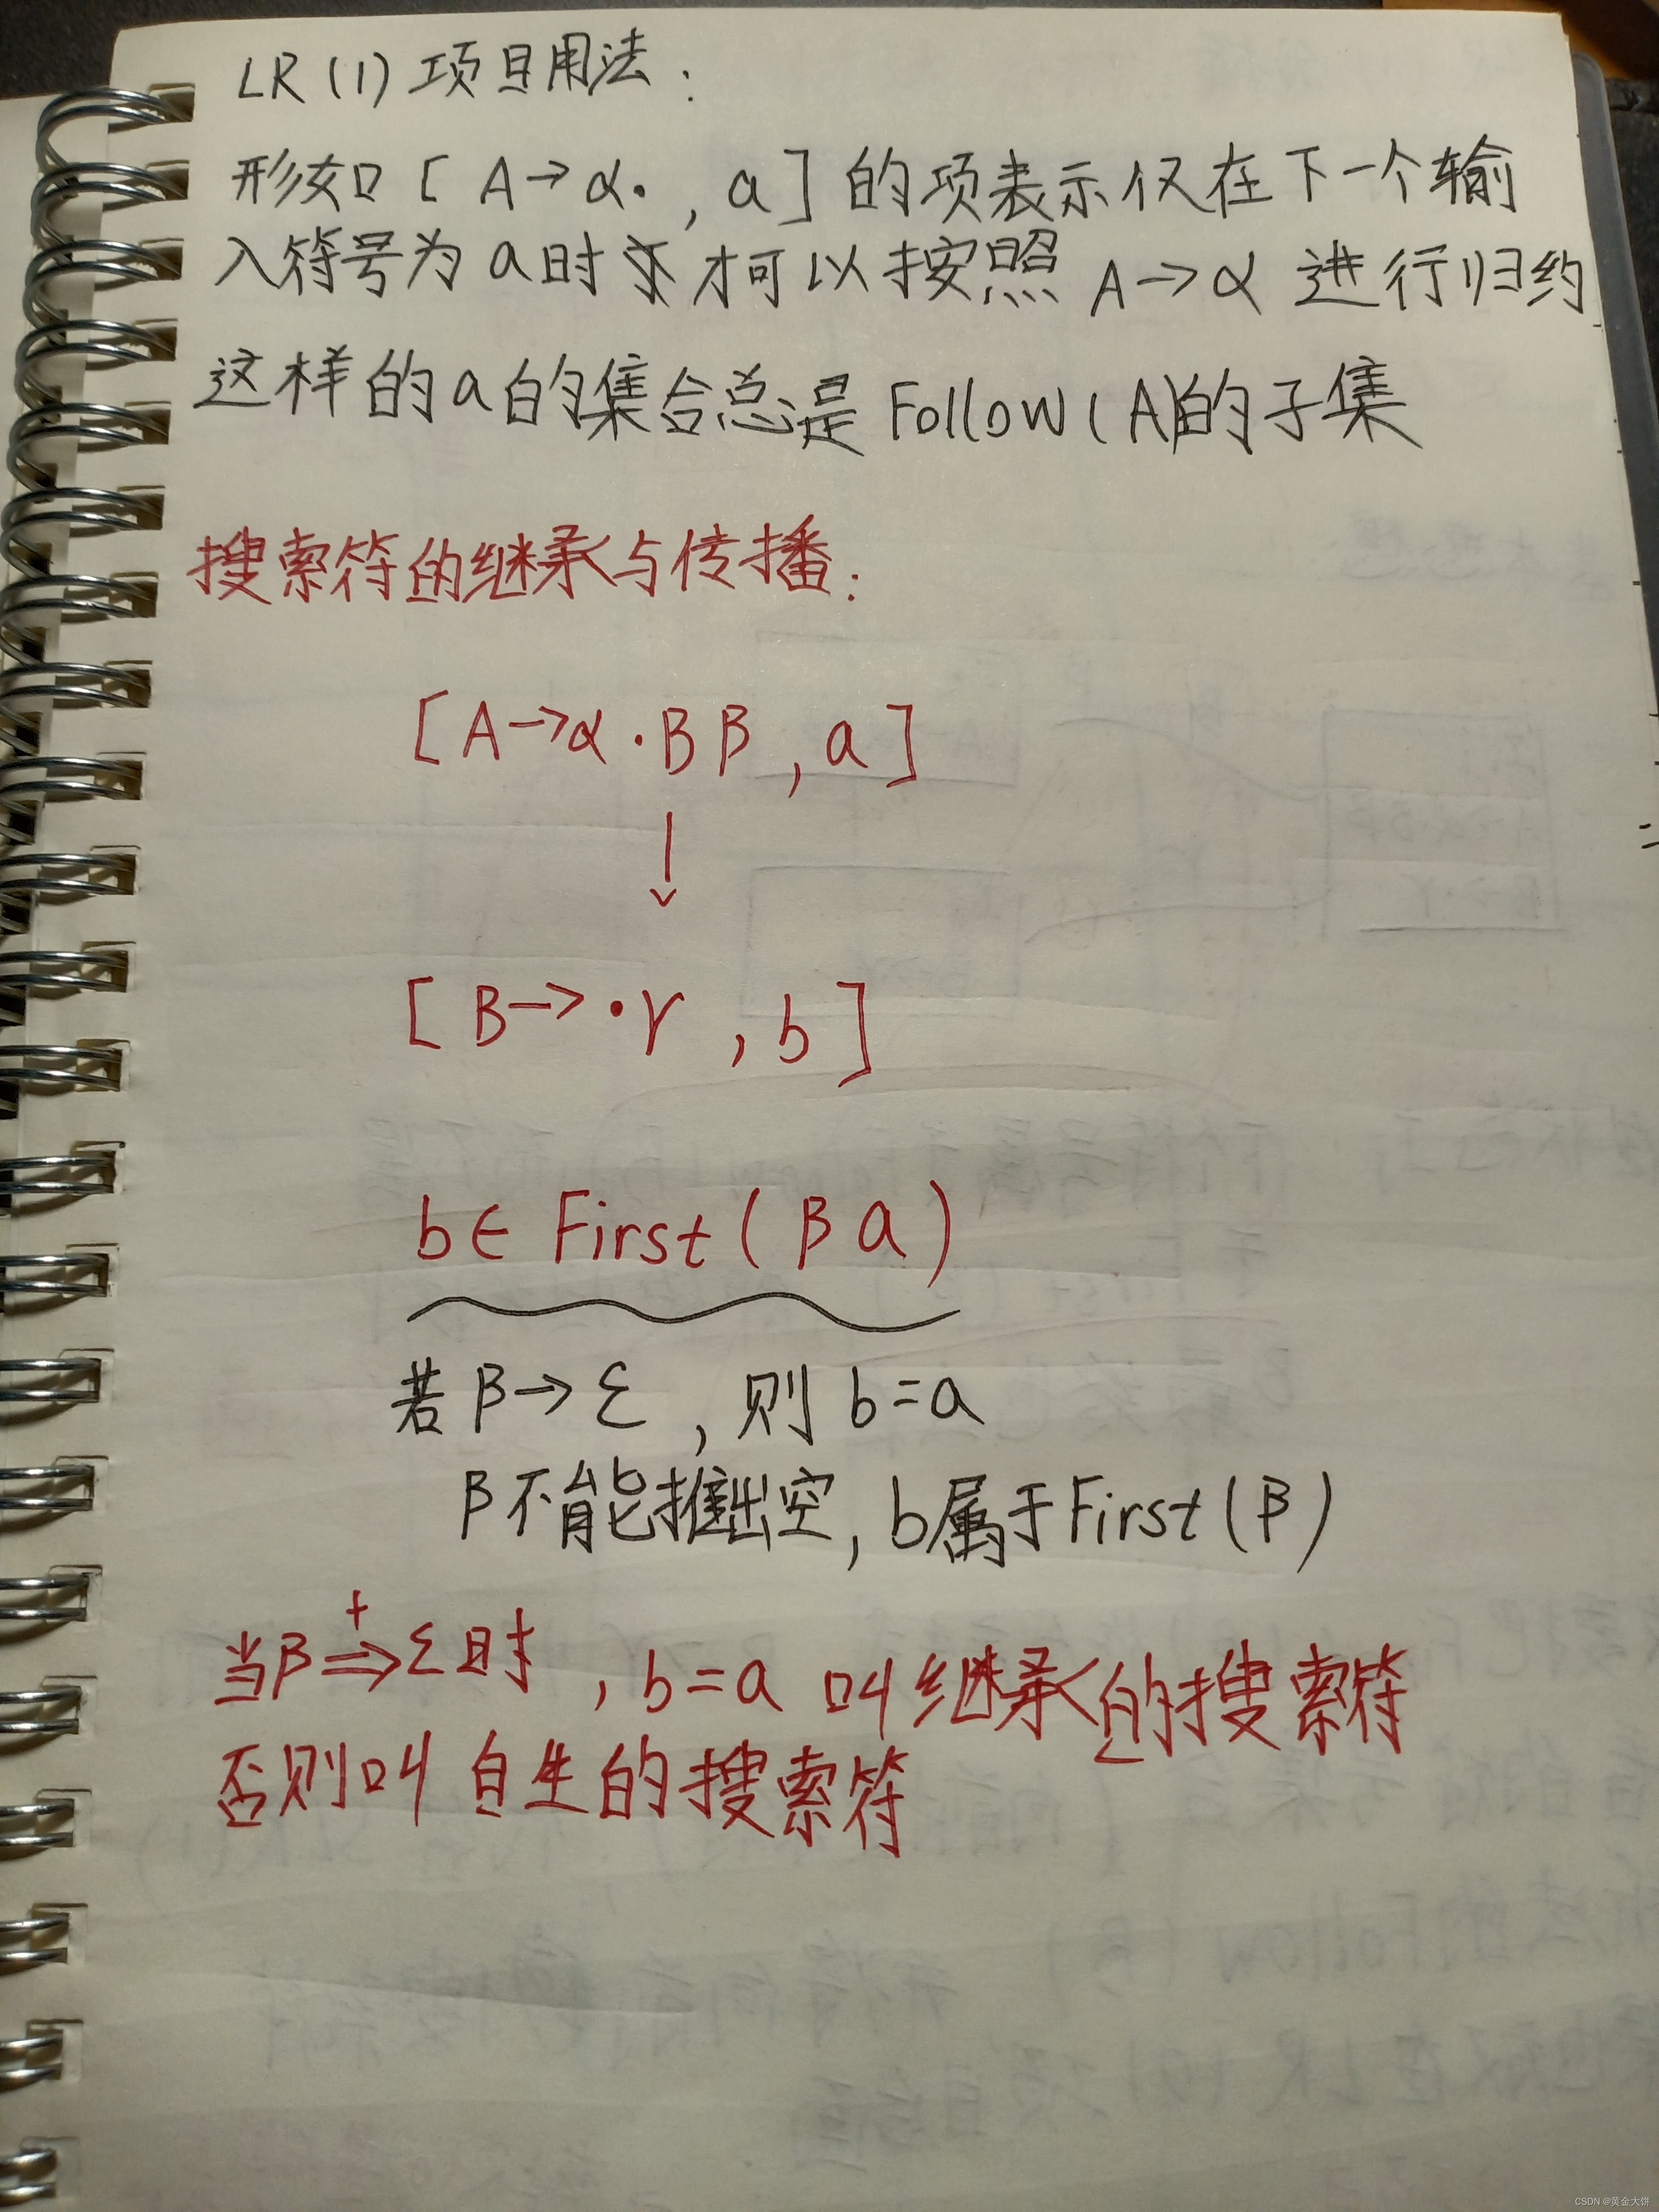 LR(1)项目用法:
形如[A→α·,a]的项表示仅在下一个输
入符号为a时才可以按照 A→α 进行归约
这样的a的集合总是Follow(A)的子集
搜索符的继承与传播:
[A→α·Bβ,a]
↓
[B→·γ,b]
b∈First(βa)
若β→ε,则b=a
β不能推出空,b属于First(β)
当β⇒+ε时,b=a叫继承的搜索符
否则叫自生的搜索符
CSDN @黄金大饼